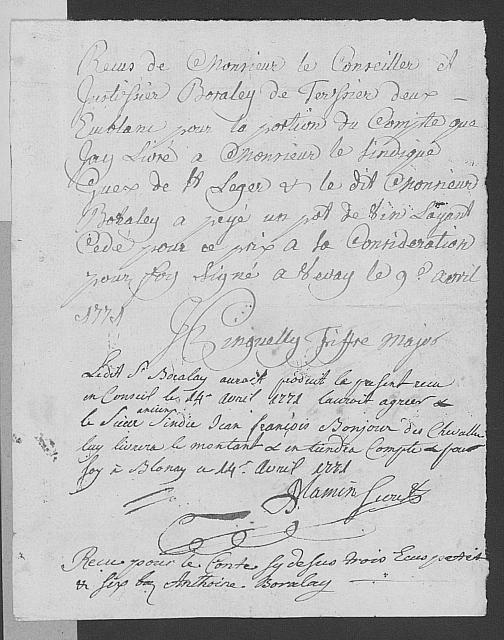 Recus de Monsieur le Conseiller et
Justissier Boraley de Tersier deux
Ecublanc pour la portion du Compte que
Jay Livré a Monsieur le sindique
Guex de St Leger & le dit Monsieur
Boraley a peyé un pot de vin Layant
Cedé pour ce prix a sa Consideration
pour foy signé a Vevay le 9e. avril
1771
Fiffre Major
Ledit Sr Boralay auroit produit le present recu
en Conseil le 14e Avril 1771 lauroit agreer &
le Sieur ancien Sindic Jean François Bonjour des Chevalle
luy livrera le montant & en tiendra Compte pour
foy à Blonay ce 14e Avril 1771
Mamin Secret
Recu pour le Conte sy desus trois Ecus petit
& six bz Anthoine Boralay